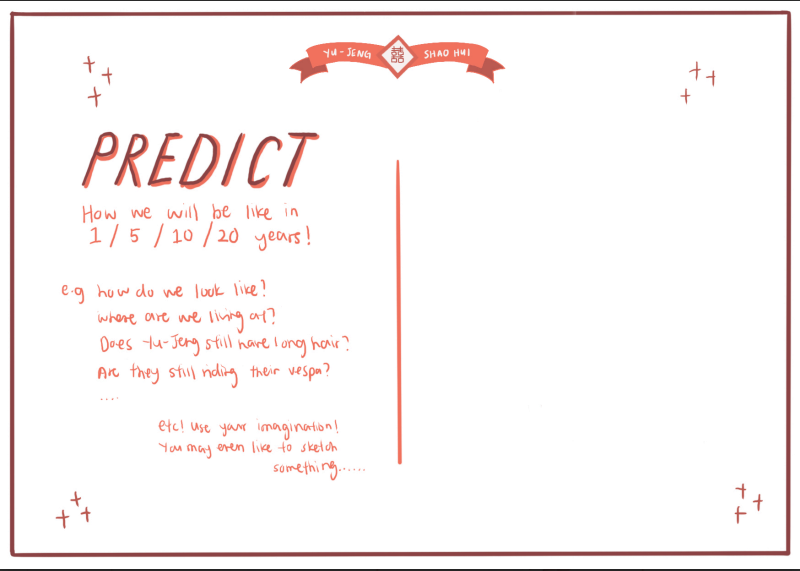 YU-JENG 囍 SHAO HUI
PREDICT
How we will be like in
1 / 5 / 10 / 20 years!
e.g how do we look like?
where are we living at?
Does Yu-Jeng still have long hair?
Are they still riding their vespa?
....
etc! use your imagination!
You may even like to sketch
something......